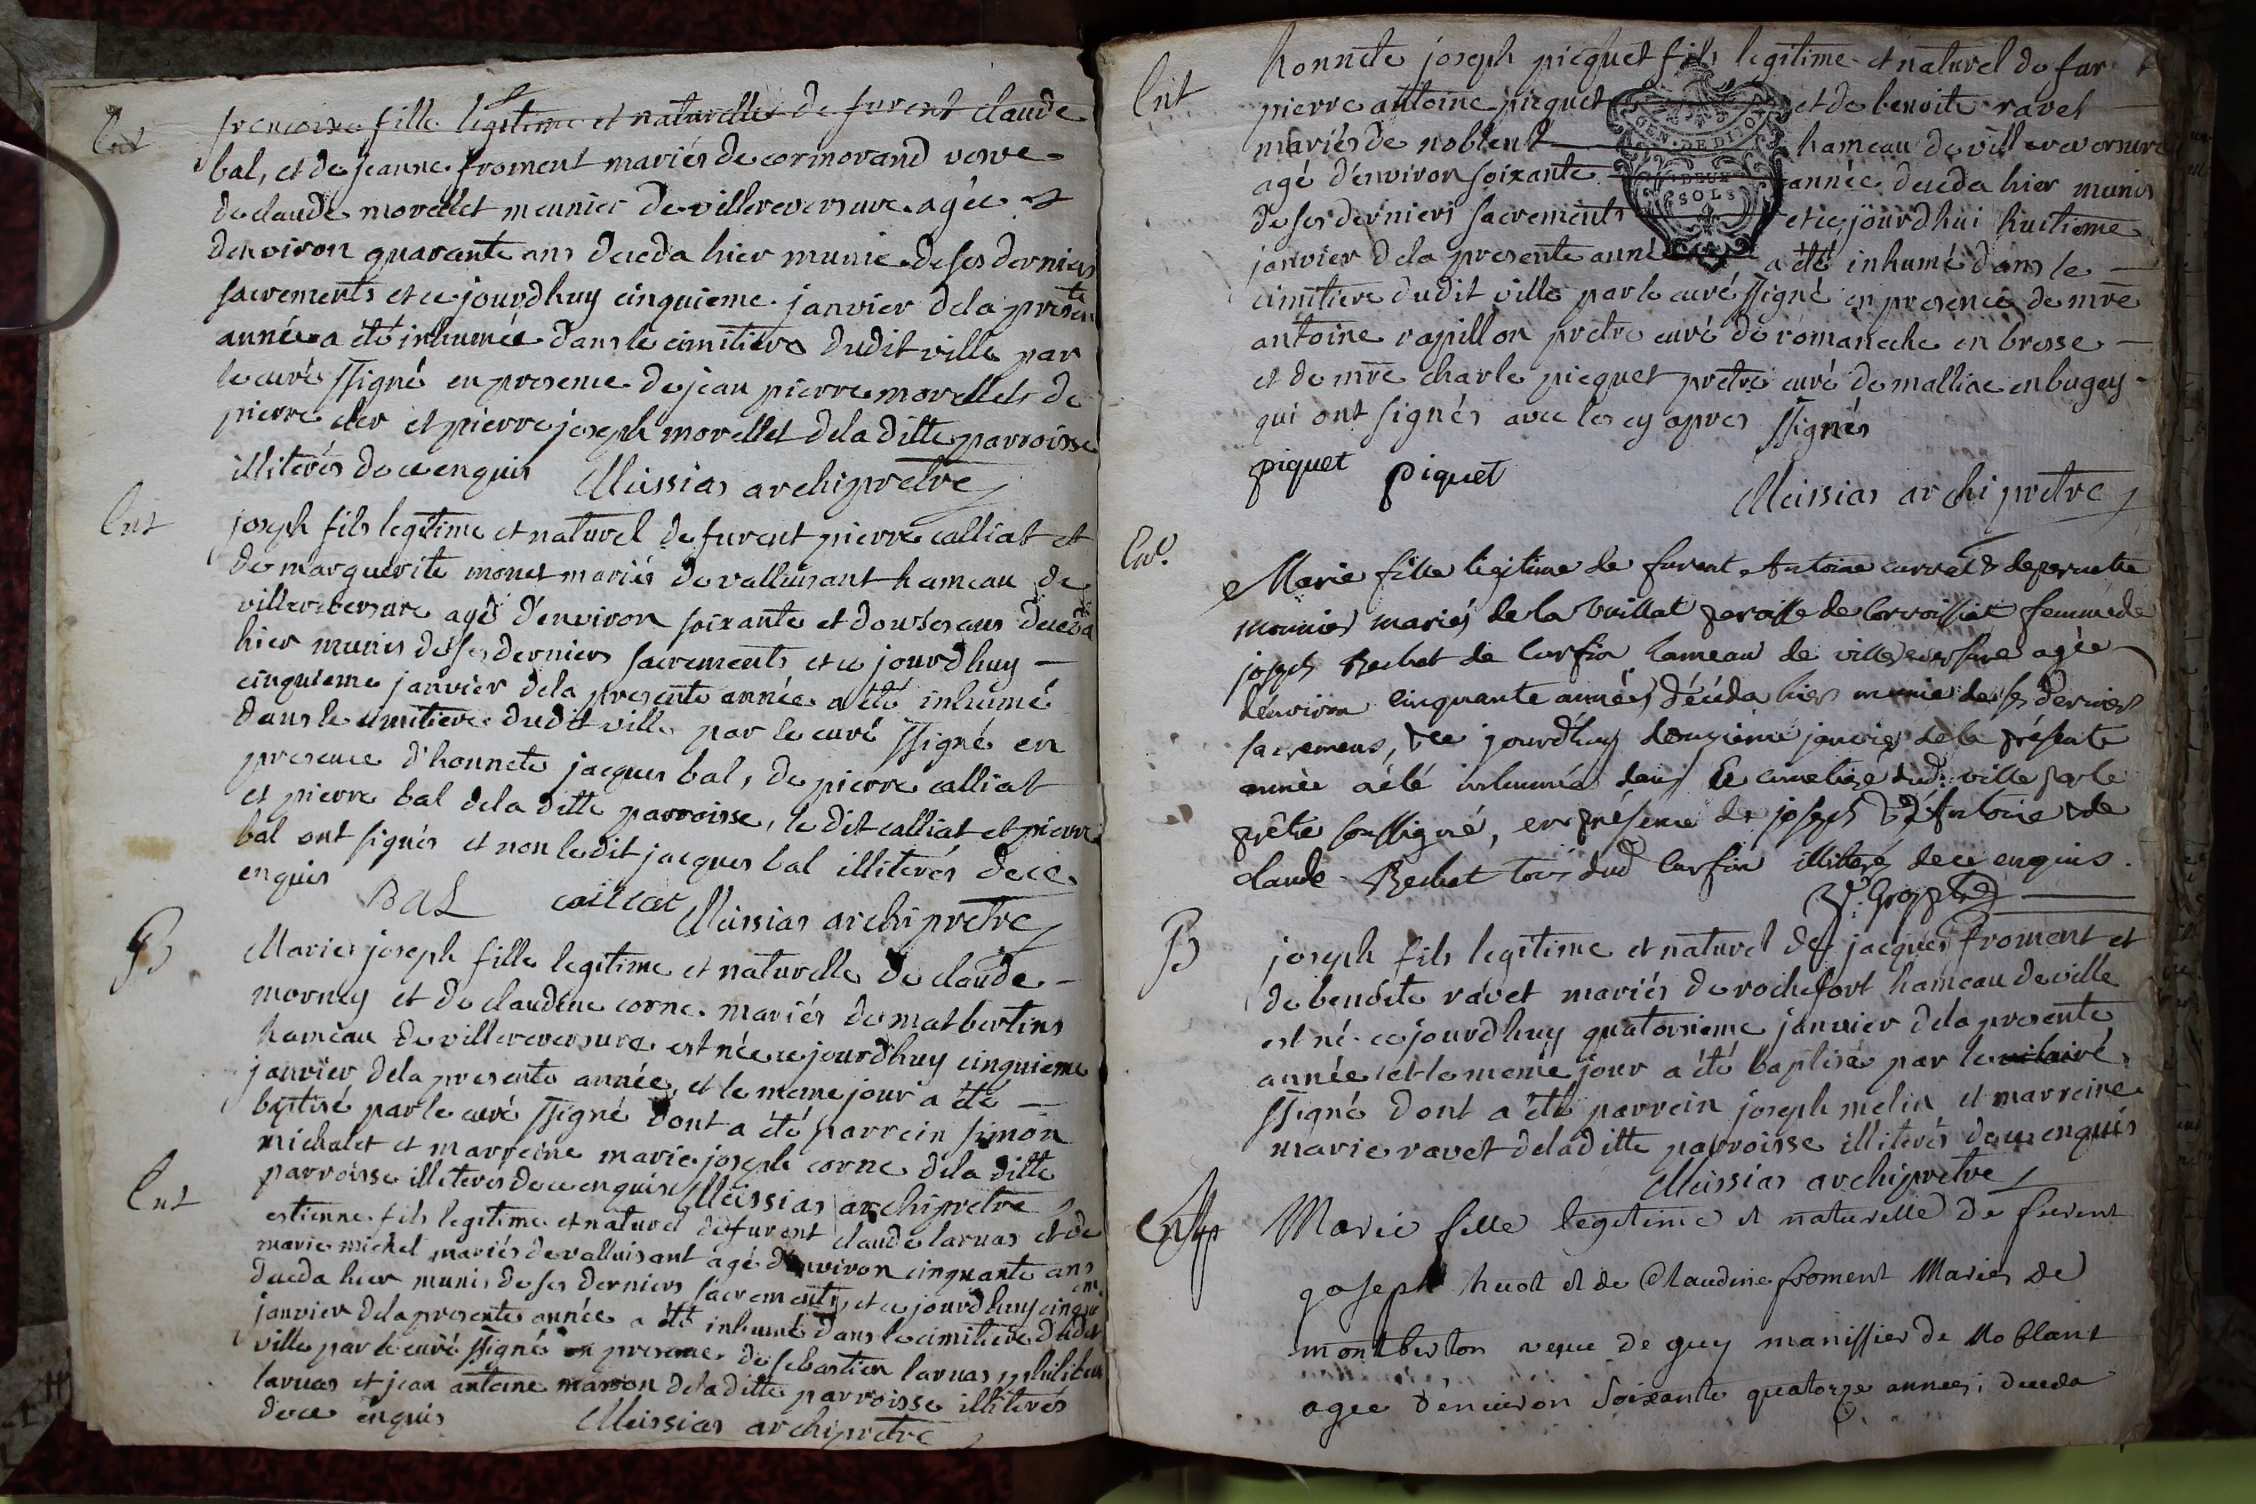 Ent
francoise fille legitime et naturelle de furent claude
bal, et de jeanne froment mariés de cormorand veuve
de claude morellet meunier de villereversure agée
denviron quarante ans deceda hier munie de ses derniers
sacrements et ce jourdhuy cinquieme janvier dela presente
année a été inhumée dans le cimitiere dudit ville par
le curé ssigné en presence de jean pierre morellet de
pierre et pierre joseph morellet dela ditte parroisse
illiterés de ce enquis Meissias archiprêtre
Ent
joseph fils legitime et naturel de furent pierre calliat et
de marguerite monet mariés de valluisant hameau de
villereversure agé d'environ soixante et douse ans deceda
hier munis de ses derniers sacrements et ce jourdhuy
cinquieme janvier dela presente année a été inhumé
dans le cimitiere dudit ville par le curé ssigné en
presence d'honnete jacques bal, de pierre calliat
et pierre bal dela ditte parroisse, le dit calliat et pierre
bal ont signés et non ledit jacques bal illiterés de ce
enquis BAL calliat Meissias archiprêtre
B
Marie joseph fille legitime et naturelle de claude
mornay et de claudine corne mariés de matbertins
hameau de villereversure est née ce jourdhuy cinquieme
janvier dela presente année, et le meme jour a été
baptisé par le curé ssigné dont a été parrein simon
michalet et marreine marie joseph corne dela ditte
parroisse illiterés de ce enquis Meissias archiprêtre
Ent
estienne fils legitime et naturel de furent claude laruas et de
marie michel mariés de valluisant agé d'environ cinquante ans
deceda hier munis de ses derniers sacrements, et ce jourdhuy cinquieme
janvier dela presente année a été inhumé dans le cimitiere dudit
ville par le curé ssigné en presence de sebastien laruas, philibert
laruas et jean antoine masson dela ditte parroisse illiterés
de ce enquis Meissias archiprêtre
Ent
honnete joseph picquet fils legitime et naturel de furent
pierre antoine picquet et de benoite ravet
mariés de noblent hameau de villereversure
agé d'environ soixante année deceda hier munis
de ses derniers sacrements et ce jourdhui huitieme
janvier dela presente année a été inhumé dans le
cimitiere dudit ville par le curé ssigné en presence de mre
antoine rapillon pretre curé de romaneche en bresse
et de mre charle picquet pretre curé de malliac en bugey
qui ont signés avec les cy apres ssignés
piquet piquet
Meissias archiprêtre
GEN. DE DIJON
DEUX
SOLS
Ent.
Marie fille légitime de furent Antoine currat & de pernette
mounier mariés de la Vuillat paroisse de Corvoissiat femme de
joseph Rechet de Curfin hameau de villereversure agée
denviron cinquante années, décéda hier munie de ses derniers
sacremens, & ce jourd'huy douzieme janvier de la présente
année a été inhumée dans le cimetiere dud. ville par le
prêtre soussigné, en présence de joseph & d'Antoine & de
claude Rechet tous dud. Curfin illitterés de ce enquis.
B
joseph fils legitime et naturel de jacques froment et
de benoite ravet mariés de rochefort hameau de ville
est né ce jourdhuy quatorsieme janvier dela presente
année et le meme jour a été baptisé par le curé
ssigné dont a été parrein joseph melin et marreine
marie ravet dela ditte parroisse illiterés de ce enquis
Meissias archiprêtre
Marie fille legitime et naturelle de furent
joseph huot et de Claudine froment Mariés de
montberton veuve de guy manissier de Noblant
agee d'environ soixante quatorze années; deceda